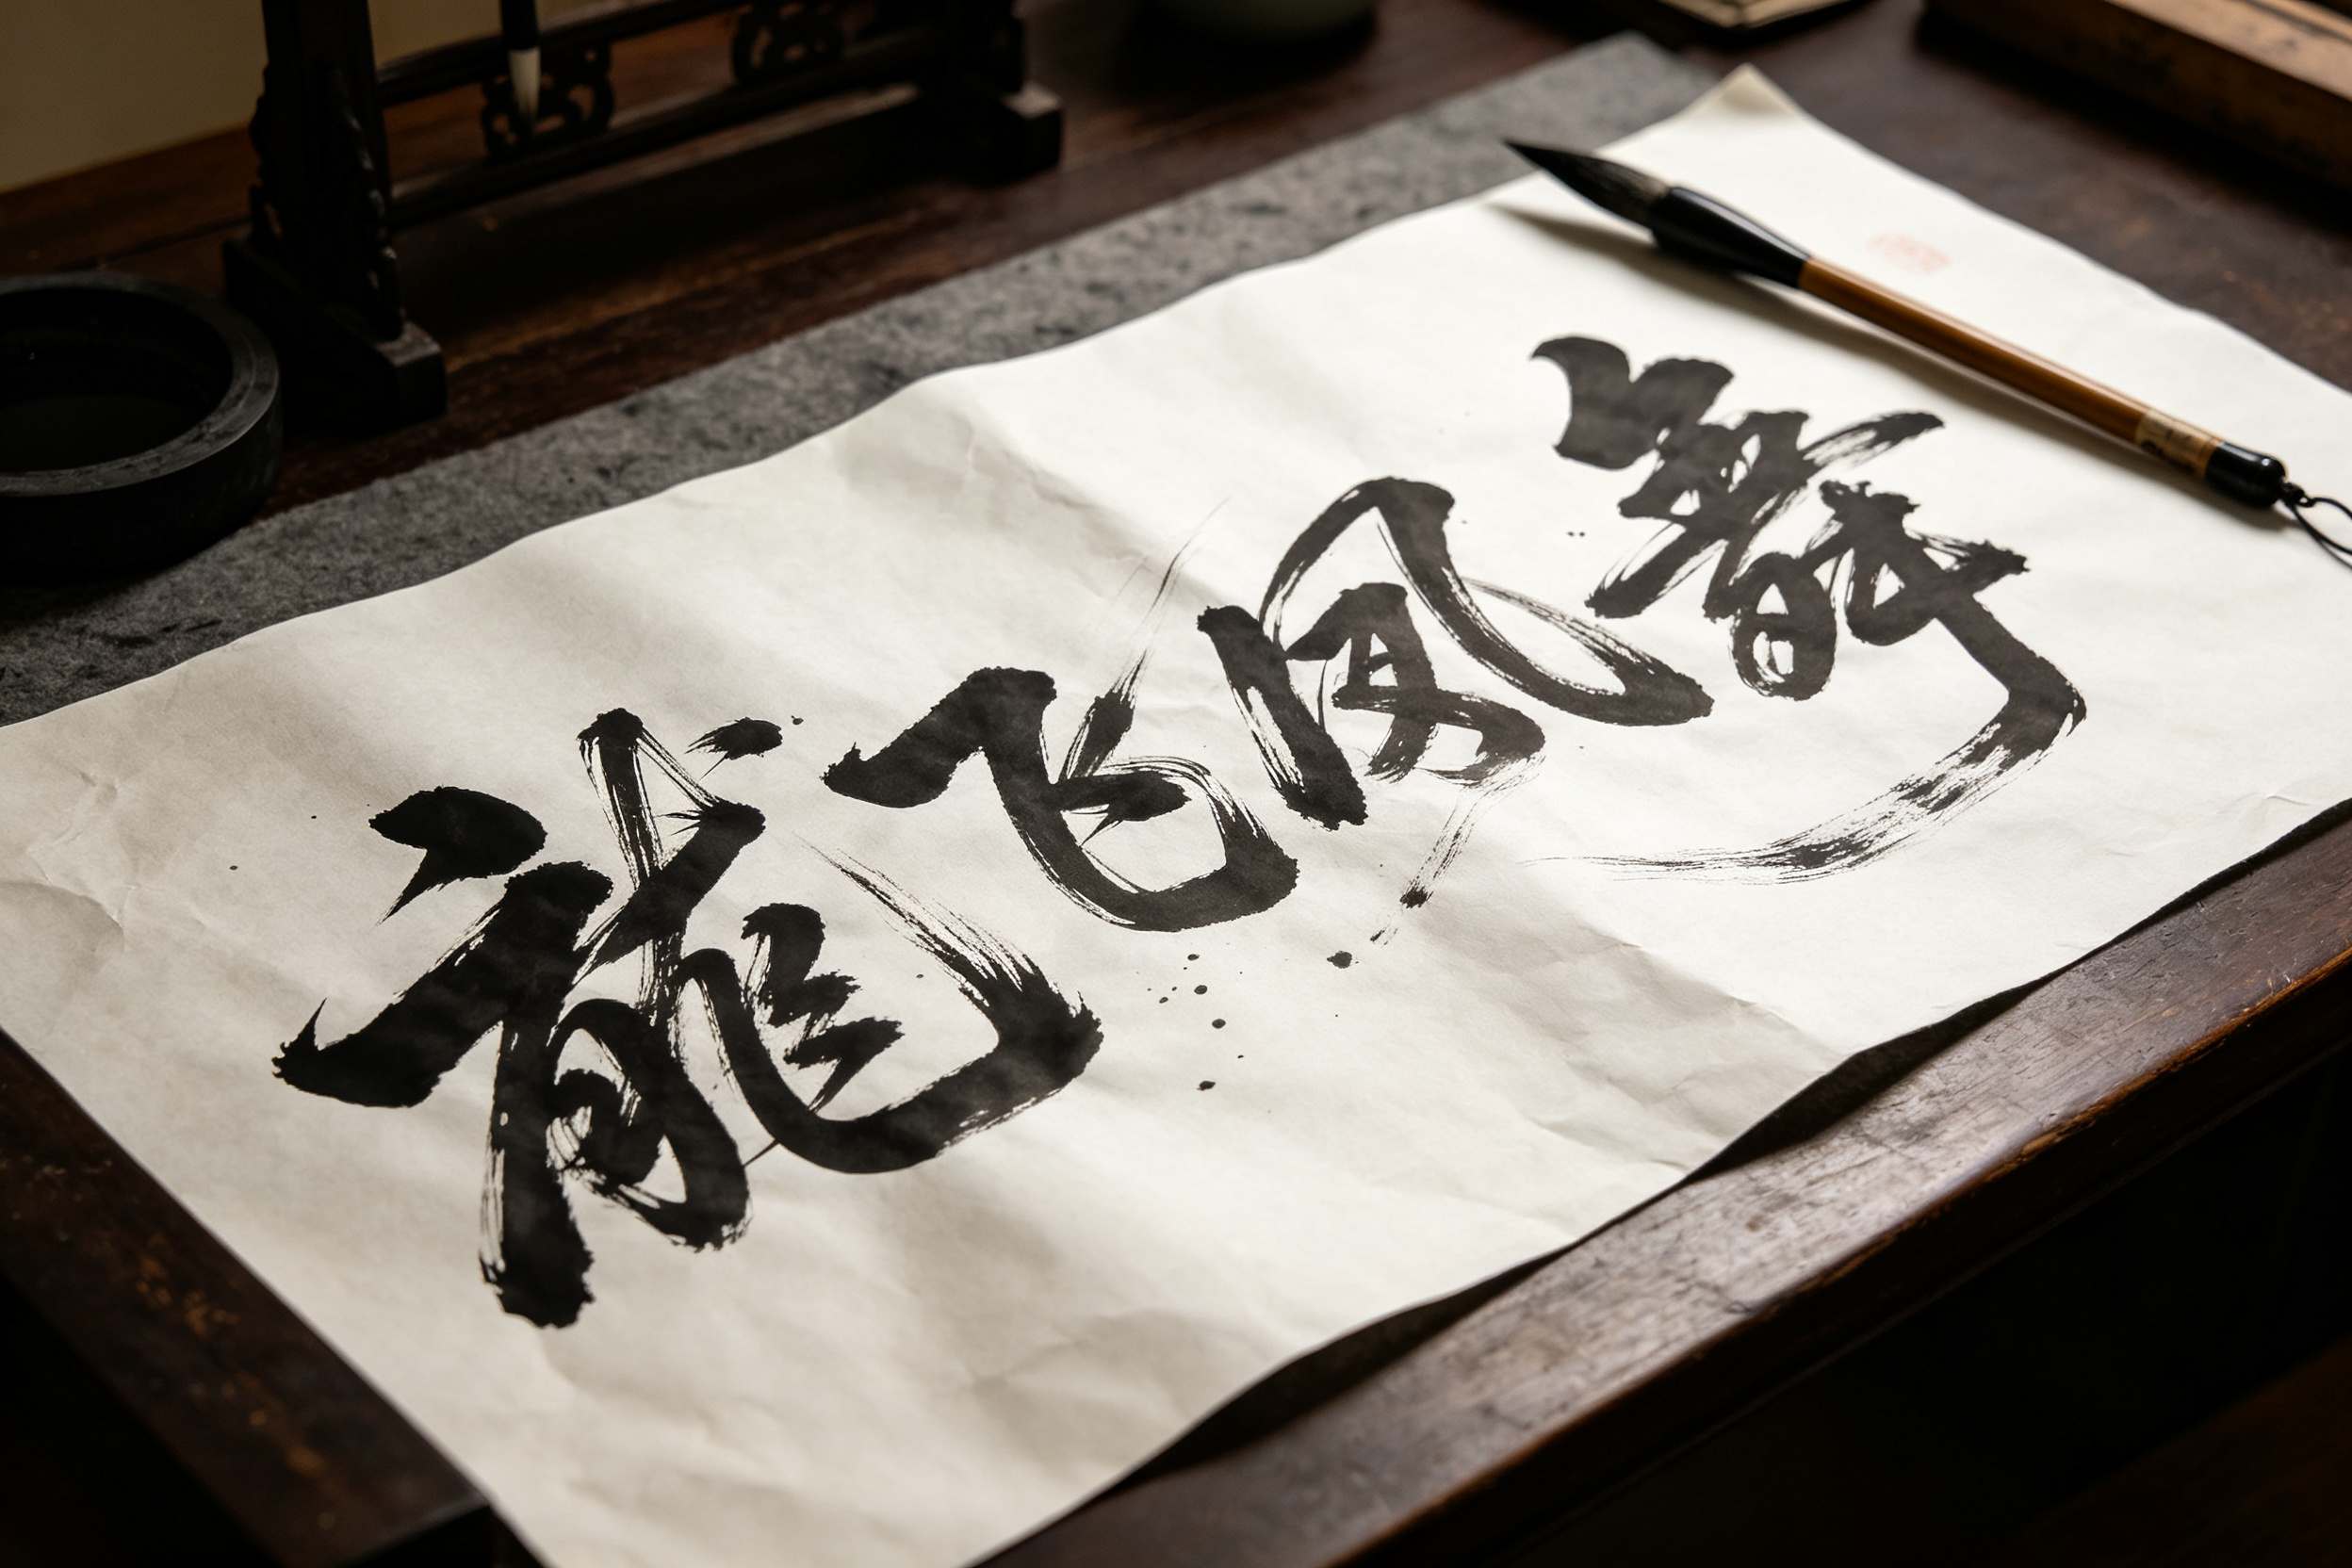 龍飞凤舞